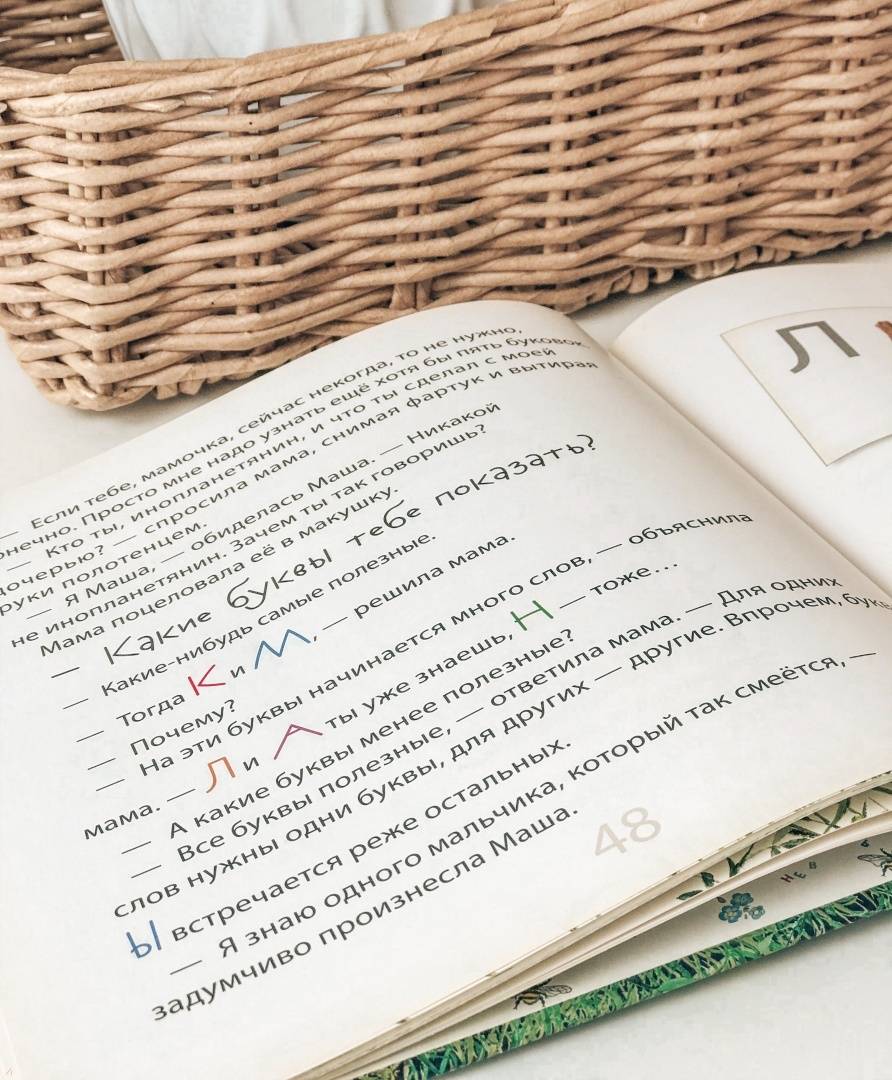 — Если тебе, мамочка, сейчас некогда, то не нужно,
конечно. Просто мне надо узнать ещё хотя бы пять буковок
— Кто ты, инопланетянин, и что ты сделал с моей
дочерью? — спросила мама, снимая фартук и вытирая
руки полотенцем.
— Я Маша, — обиделась Маша. — Никакой
не инопланетянин. Зачем ты так говоришь?
Мама поцеловала её в макушку.
— Какие буквы тебе показать?
— Какие-нибудь самые полезные.
— Тогда К и М, — решила мама.
— Почему?
— На эти буквы начинается много слов, — объяснила
мама. — Л и А ты уже знаешь, Н — тоже...
— А какие буквы менее полезные?
— Все буквы полезные, — ответила мама. — Для одних
слов нужны одни буквы, для других — другие. Впрочем,
Ы встречается реже остальных.
— Я знаю одного мальчика, который так смеётся, —
задумчиво произнесла Маша.
48
Л